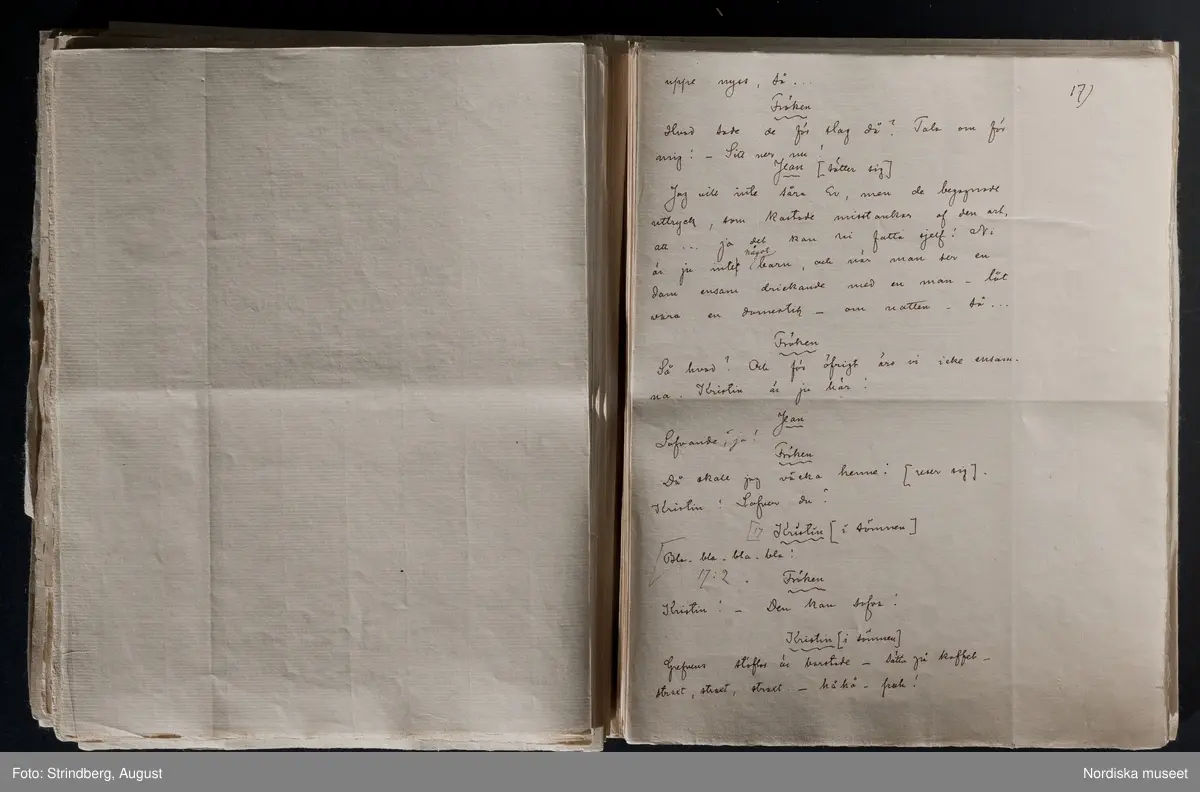 17)
uppe nyss, så ...
Fröken
Hvad sade de för slag då? Tala om för
mig! – Sitt ner nu!
Jean [sätter sig]
Jag vill inte såra Er, men de begagnade
uttryck, som kastade misstankar af den art,
att ... ja det kan ni fatta sjelf! Ni
är ju intet något barn, och når man ser en
dam ensam drickande med en man – låt
vara en domestik – om natten – så ...
Fröken
Så hvad? Och för öfrigt äro vi icke ensam-
na. Kristin är ju här!
Jean
Sofvande, ja!
Fröken
Då skall jag väcka henne! [reser sig].
Kristin! Sofver du?
[17 Kristin [i sömnen]
[Bla- bla- bla- bla!
17:2.
Fröken
Kristin! – Den kan sofva!
Kristin [i sömnen]
Grefvens stöflar är borstade – sätta på kaffet –
strax, strax, strax – håhå – puh!
Foto: Strindberg, August
Nordiska museet